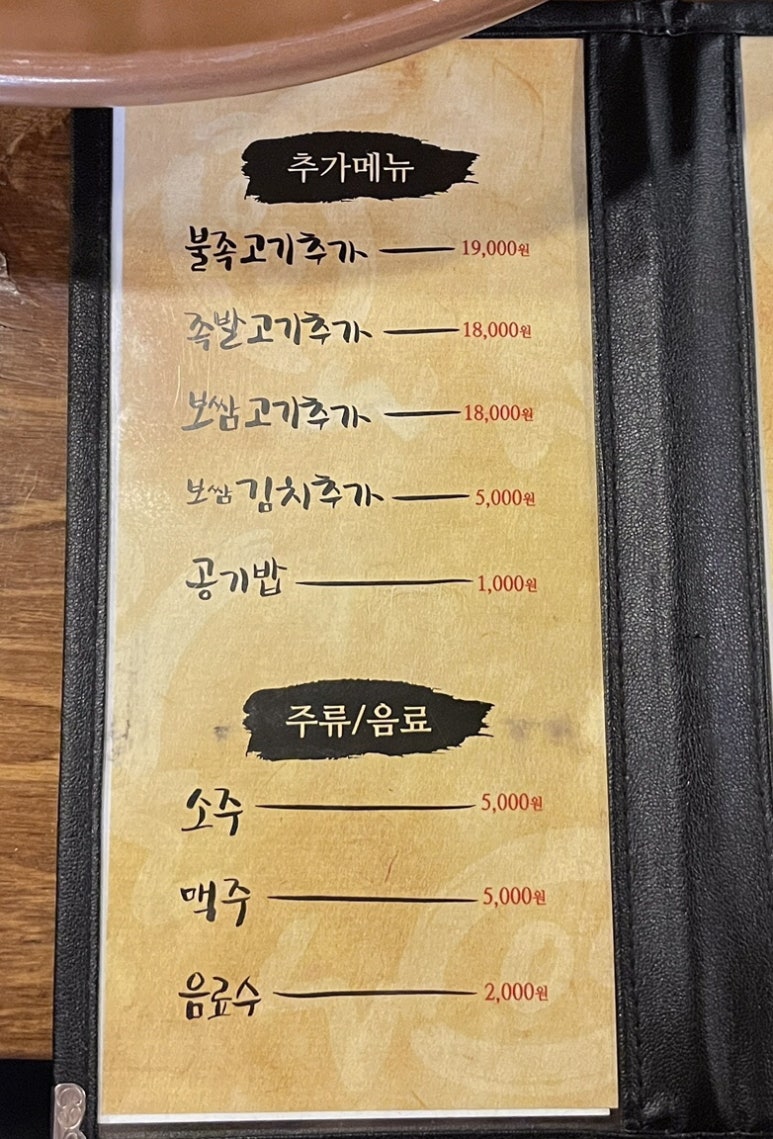 추가메뉴
불족고기추가 19,000원
족발고기추가 18,000원
보쌈고기추가 18,000원
보쌈김치추가 5,000원
공기밥 1,000원
주류/음료
소주 5,000원
맥주 5,000원
음료수 2,000원